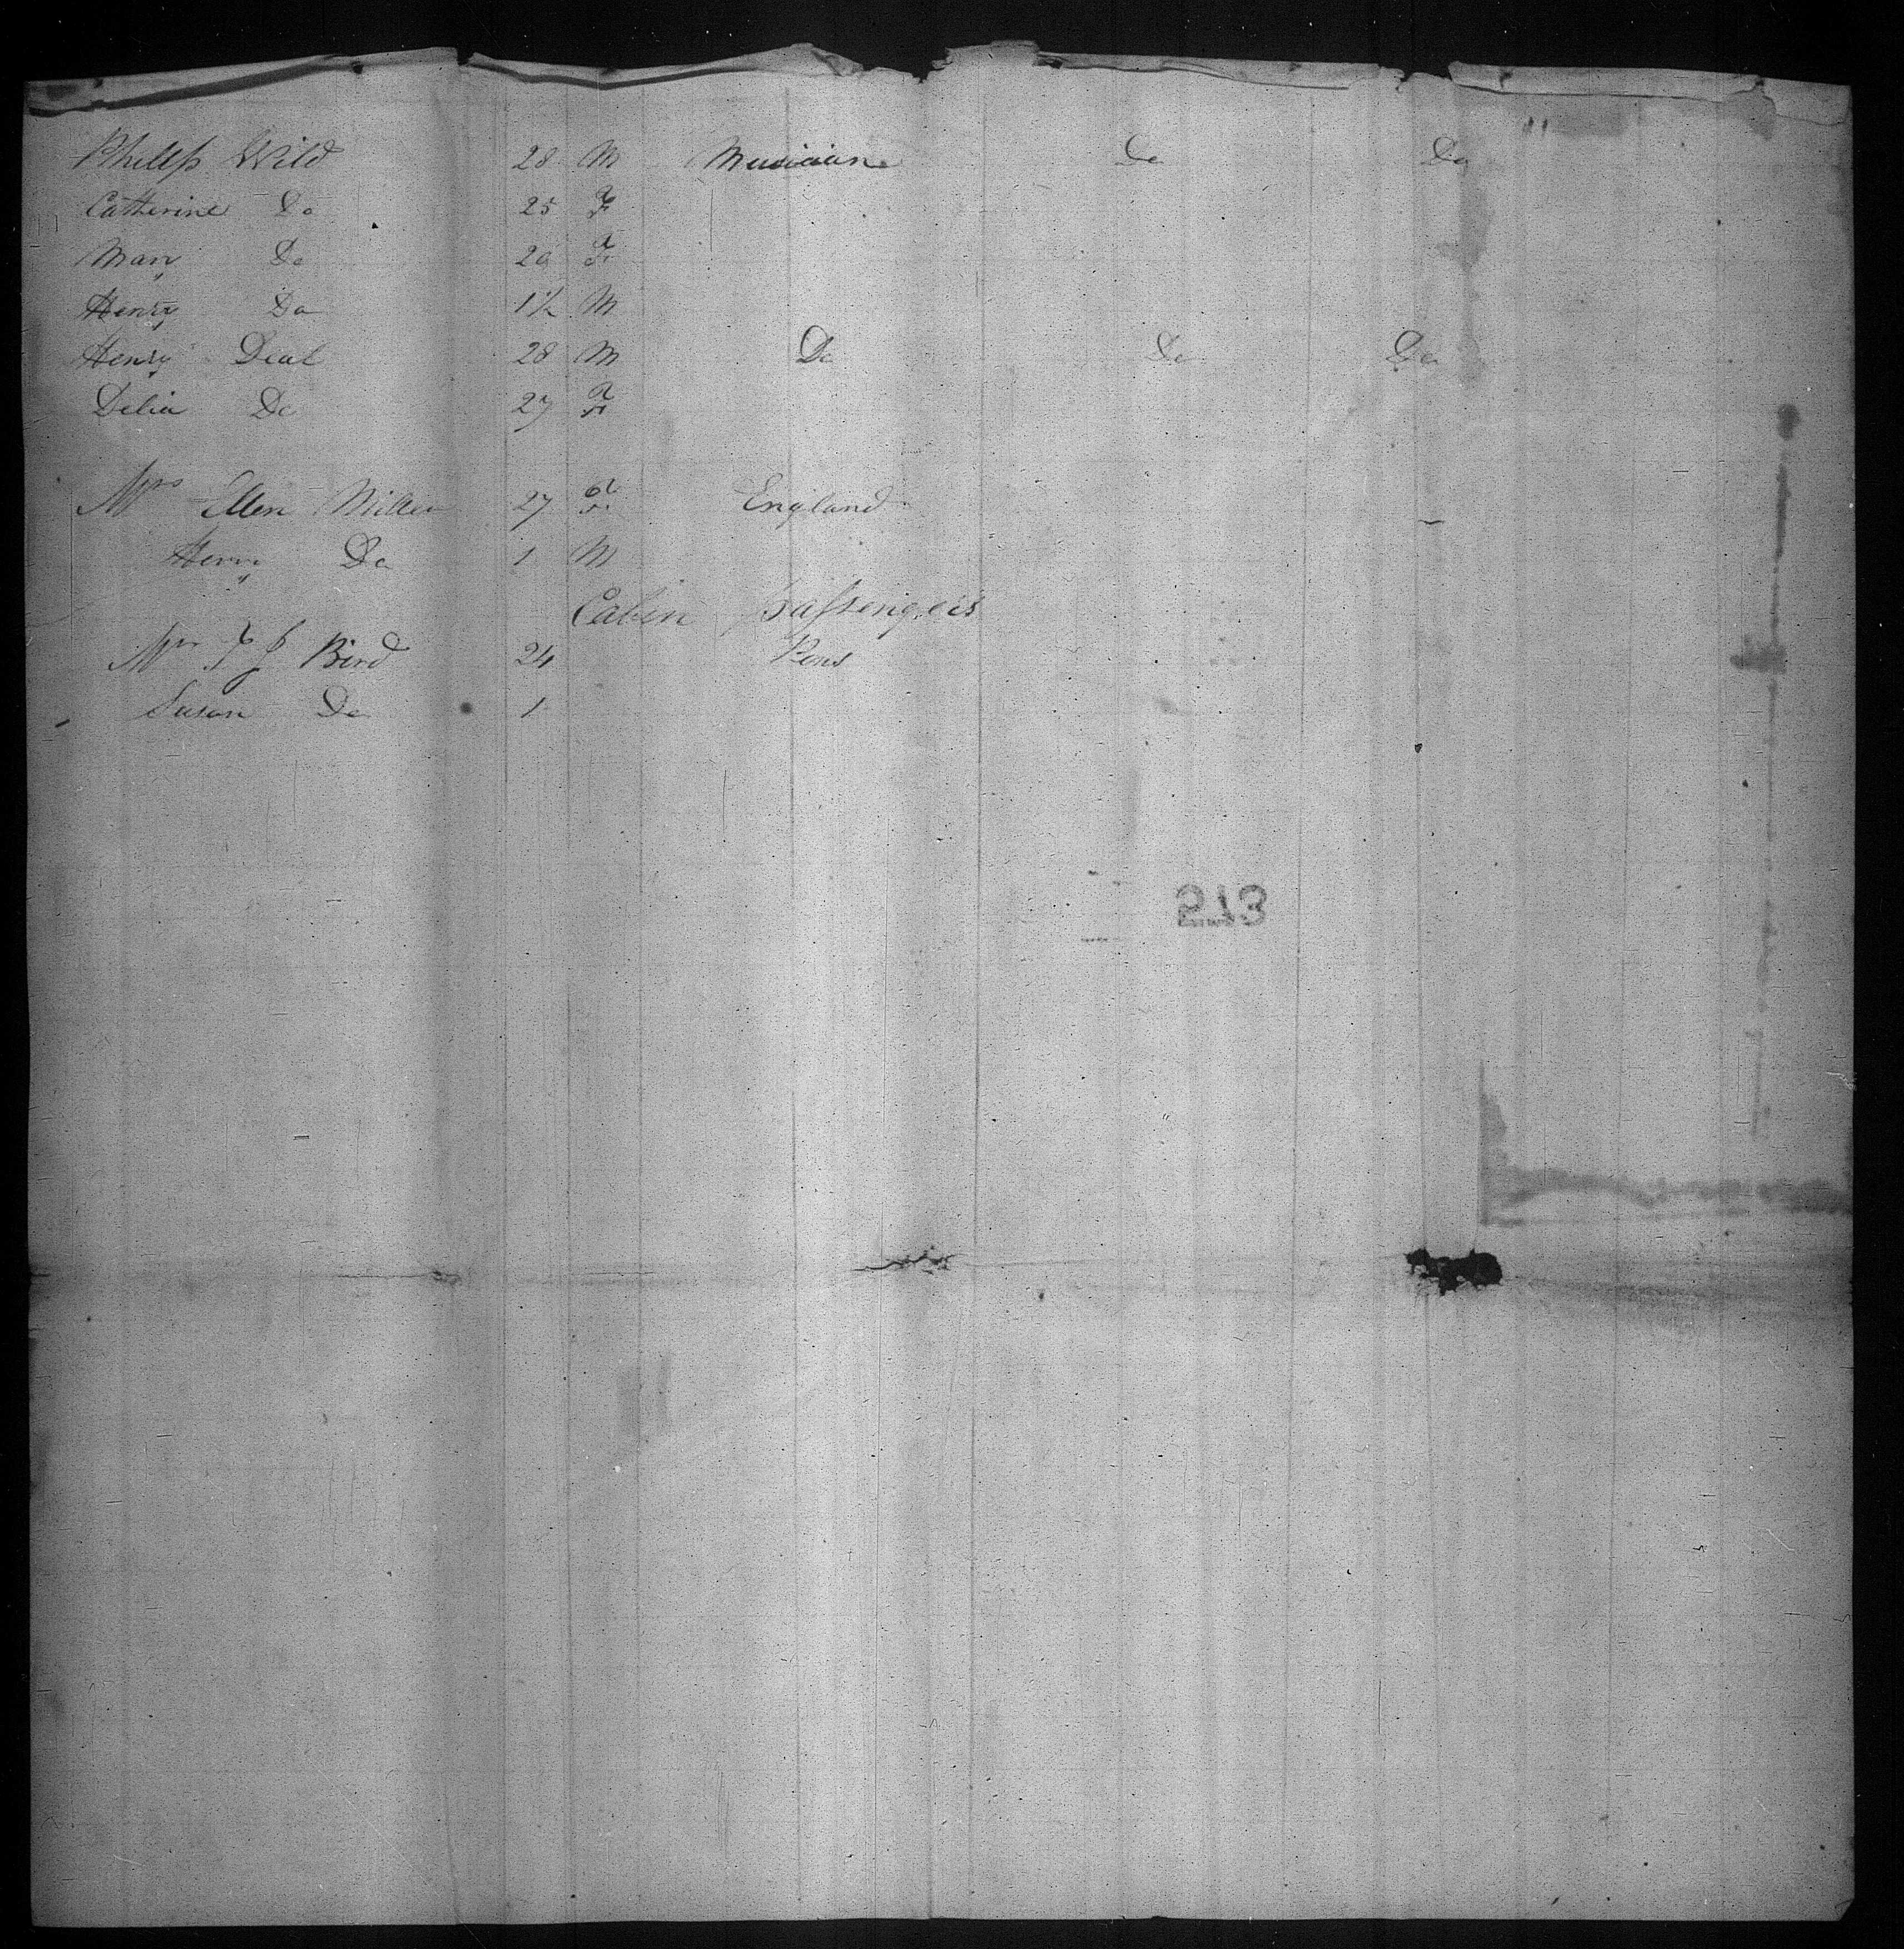 Philip Wild 28 M Musician Do Do
Catherine Do 25 F
Mary Do 20 F
Henry Do 1½ M
Henry Deal 28 M Do Do Do
Delia Do 27 F
Mrs Ellen Miller 27 F England
Henry Do 1 M
Cabin passengers
Bird 24
Susan Do 1